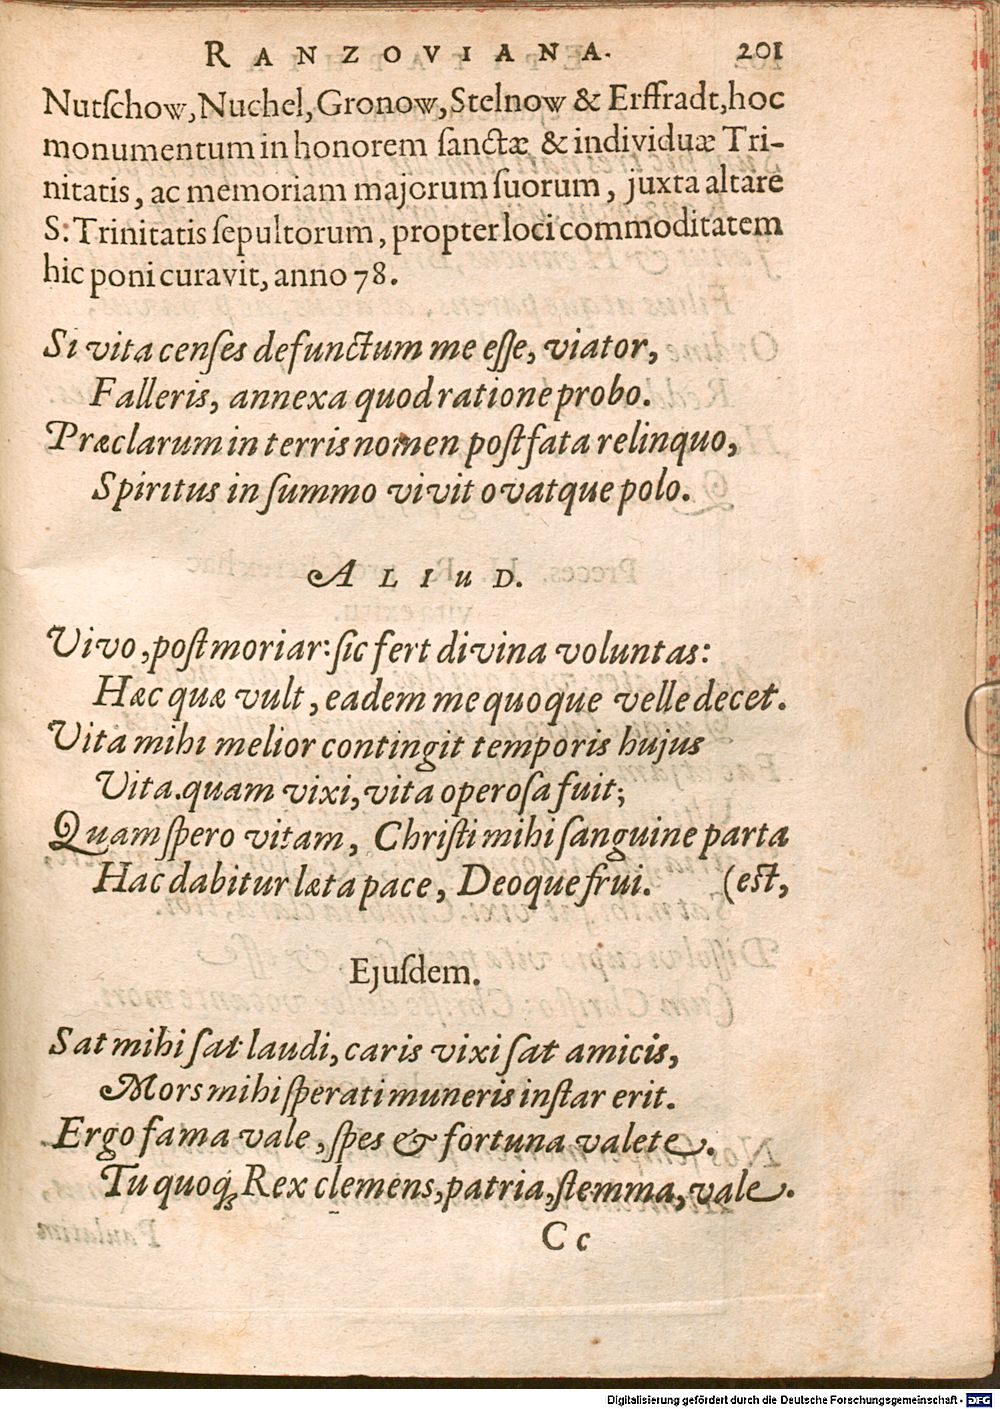 RANZOVIANA. 201
Nutſchow, Nuchel, Gronow, Stelnow & Erffradt, hoc
monumentum in honorem ſanctæ & individuæ Tri-
nitatis, ac memoriam majorum ſuorum, juxta altare
S. Trinitatis ſepultorum, propter loci commoditatem
hic poni curavit, anno 78.
Si vita cenſes defunctum me eſſe, viator,
Falleris, annexa quod ratione probo.
Præclarum in terris nomen poſt fata relinquo,
Spiritus in ſummo vivit ovatque polo.
ALIUD.
Vivo, poſt moriar: ſic fert divina voluntas:
Hæc quæ vult, eadem me quoque velle decet.
Vita mihi melior contingit temporis hujus
Vita. quam vixi, vita operoſa fuit;
Quam ſpero vitam, Chriſti mihi ſanguine parta
Hac dabitur læta pace, Deoque frui. (eſt,
Ejuſdem.
Sat mihi ſat laudi, caris vixi ſat amicis,
Mors mihi ſperati muneris inſtar erit.
Ergo fama vale, ſpes & fortuna valete.
Tu quoqꝫ Rex clemens, patria, ſtemma, vale.
Cc
Digitalisierung gefördert durch die Deutsche Forschungsgemeinschaft - DFG